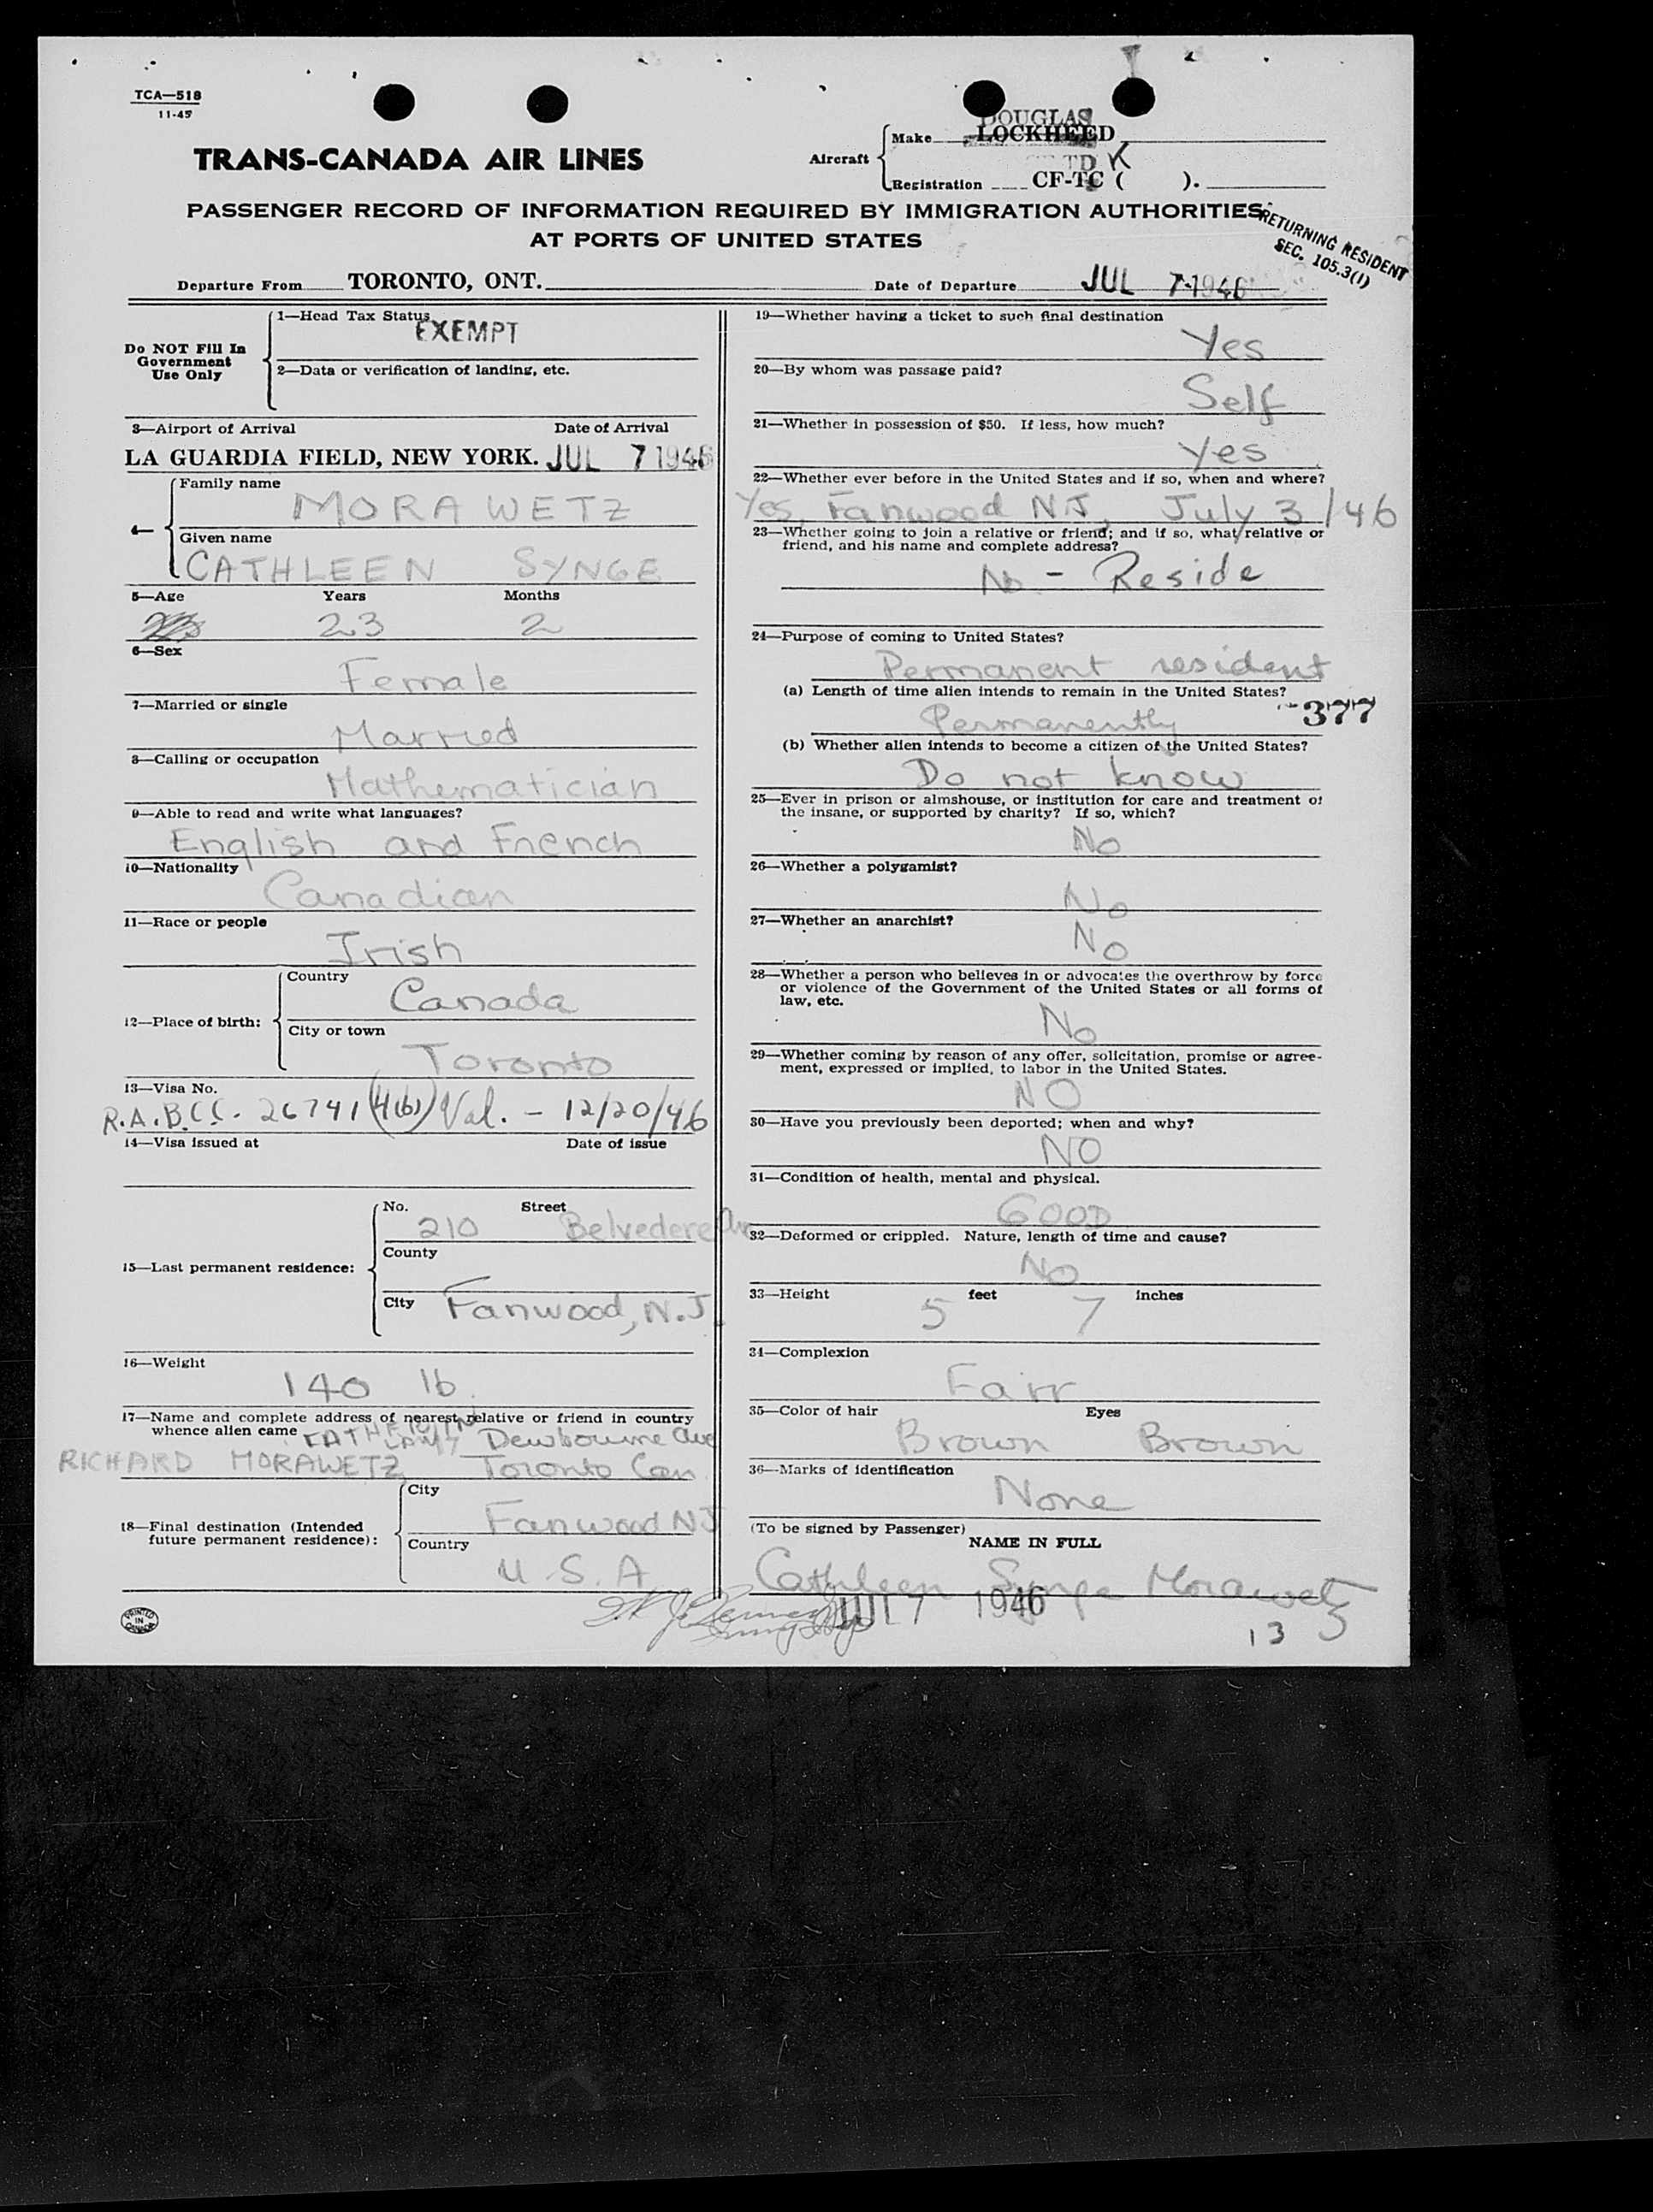 TCA—518
11-45
TRANS-CANADA AIR LINES
Aircraft
Make DOUGLAS
LOCKHEED
TD K
Registration CF-TC ( ).
PASSENGER RECORD OF INFORMATION REQUIRED BY IMMIGRATION AUTHORITIES
AT PORTS OF UNITED STATES
RETURNING RESIDENT
SEC. 105.3(1)
Departure From TORONTO, ONT.
Date of Departure JUL 7-1946
Do NOT Fill In
Government
Use Only
1—Head Tax Status
EXEMPT
2—Data or verification of landing, etc.
3—Airport of Arrival Date of Arrival
LA GUARDIA FIELD, NEW YORK. JUL 7 1946
4—
Family name
MORAWETZ
Given name
CATHLEEN SYNGE
5—Age Years Months
23 2
6—Sex
Female
7—Married or single
Married
8—Calling or occupation
Mathematician
9—Able to read and write what languages?
English and French
10—Nationality
Canadian
11—Race or people
Irish
12—Place of birth:
Country
Canada
City or town
Toronto
13—Visa No.
R.A.B.C.C. 26741 (4(b)) Val. - 12/20/46
14—Visa issued at Date of issue
15—Last permanent residence:
No. Street
210 Belvedere Ave
County
City Fanwood, N.J.
16—Weight
140 lb.
17—Name and complete address of nearest relative or friend in country
whence alien came FATHER IN
LAW Dewbourne Ave
RICHARD MORAWETZ Toronto Can
18—Final destination (Intended
future permanent residence):
City
Fanwood NJ
Country
U.S.A
PRINTED
IN
CANADA
19—Whether having a ticket to such final destination
Yes
20—By whom was passage paid?
Self
21—Whether in possession of $50. If less, how much?
Yes
22—Whether ever before in the United States and if so, when and where?
Yes, Fanwood N.J, July 3/46
23—Whether going to join a relative or friend; and if so, what relative or
friend, and his name and complete address?
No - Reside
24—Purpose of coming to United States?
Permanent resident
(a) Length of time alien intends to remain in the United States?
377
Permanently
(b) Whether alien intends to become a citizen of the United States?
Do not know
25—Ever in prison or almshouse, or institution for care and treatment of
the insane, or supported by charity? If so, which?
No
26—Whether a polygamist?
No
27—Whether an anarchist?
No
28—Whether a person who believes in or advocates the overthrow by force
or violence of the Government of the United States or all forms of
law, etc.
No
29—Whether coming by reason of any offer, solicitation, promise or agree-
ment, expressed or implied, to labor in the United States.
NO
30—Have you previously been deported; when and why?
NO
31—Condition of health, mental and physical.
GOOD
32—Deformed or crippled. Nature, length of time and cause?
No
33—Height 5 feet 7 inches
34—Complexion
Fair
35—Color of hair Eyes
Brown Brown
36—Marks of identification
None
(To be signed by Passenger)
NAME IN FULL
Cathleen Synge Morawetz
JUL 7 1946
13